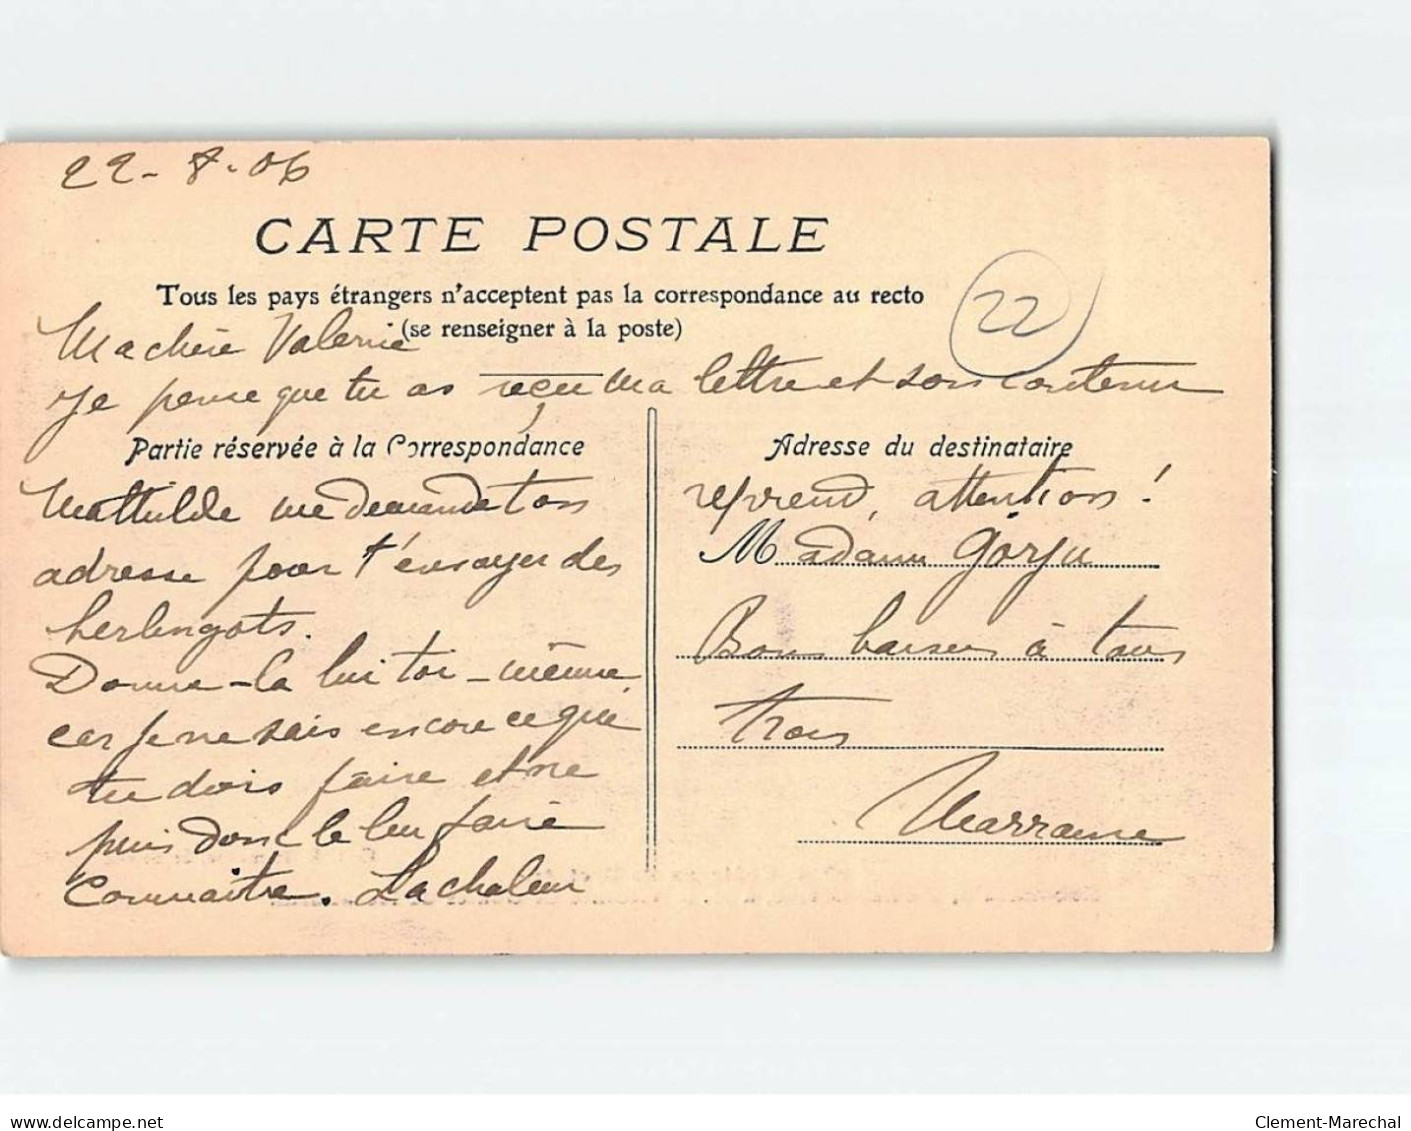 22-8-06
CARTE POSTALE
Tous les pays étrangers n'acceptent pas la correspondance au recto
(se renseigner à la poste)
22
Ma chère Valerie
Je pense que tu as reçu ma lettre et son contenu
Partie réservée à la Correspondance
Mathilde me demande ton
adresse pour t'envoyer des
berlingots.
Donne-la lui toi-même
car je ne sais encore ce que
tu dois faire et ne
puis donc le leur faire
Connaitre. La chaleur
Adresse du destinataire
reprend, attention!
Madame Gorju
Bons baisers à tous
trois
Marraine
delcampe.net
Clement-Marechal